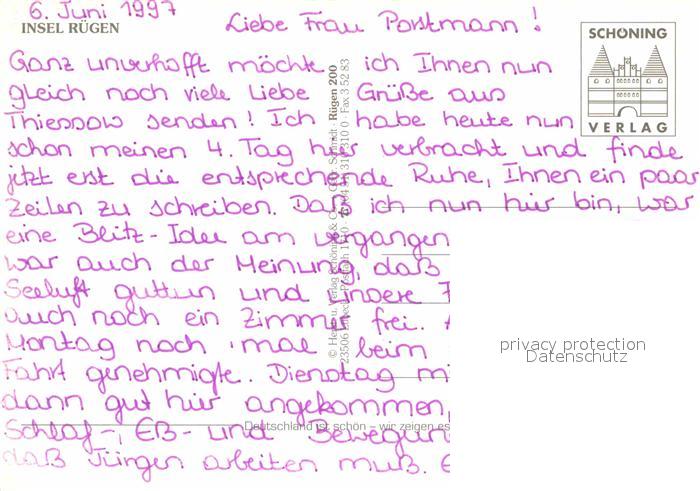 6. Juni 1997
INSEL RÜGEN
Liebe Frau Porstmann!
Ganz unverhofft möchte ich Ihnen nun
gleich noch viele Liebe Grüße aus
Thiessow senden! Ich habe heute nun
schon meinen 4. Tag hier verbracht und finde
jetzt erst die entsprechende Ruhe, Ihnen ein paar
Zeilen zu schreiben. Daß ich nun hier bin, war
eine Blitz-Idee am vergangen
war auch der Meinung, daß
Seeluft guttun und unsere
auch noch ein Zimmer frei.
Montag noch 'mal beim
Fahrt genehmigte. Dienstag mi
dann gut hier angekommen,
Schlaf-, Eß- und Bewegun
daß Jürgen arbeiten muß.
SCHÖNING
VERLAG
Rügen 200
Fax 3 52 83
Deutschland ist schön – wir zeigen es
privacy protection
Datenschutz